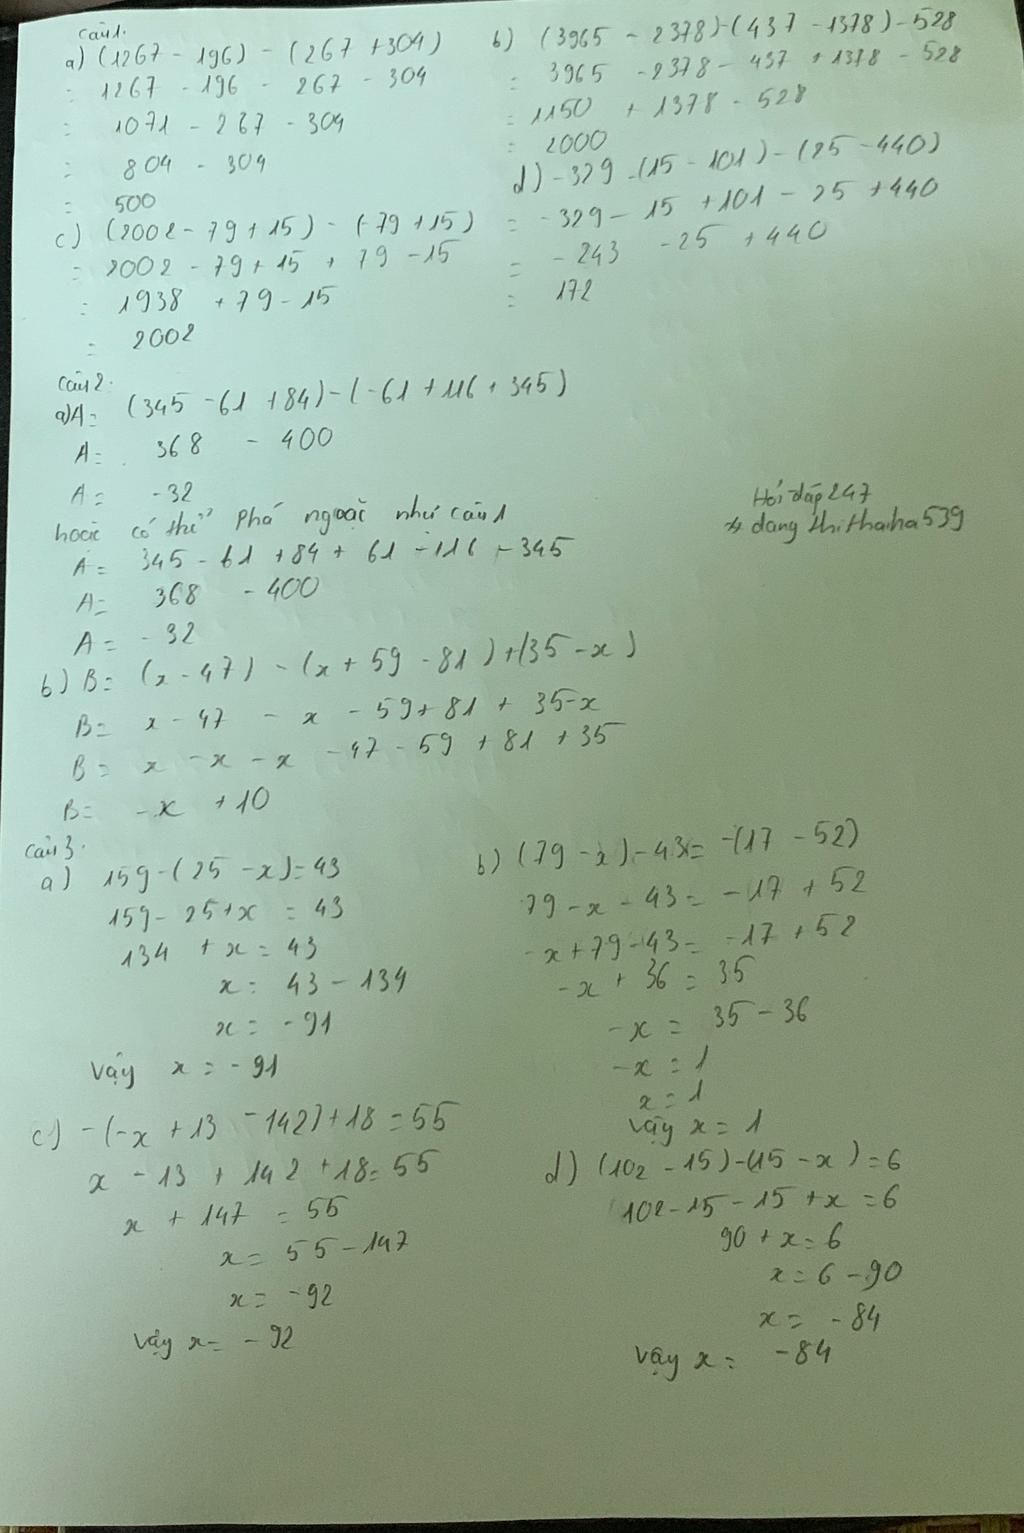 Câu 1.
a) (1267 - 196) - (267 + 304)
= 1267 - 196 - 267 - 304
= 1071 - 267 - 304
= 804 - 304
= 500
b) (3965 - 2378) - (437 - 1378) - 528
= 3965 - 2378 - 437 + 1378 - 528
= 1150 + 1378 - 528
= 2000
c) (2002 - 79 + 15) - (-79 + 15)
= 2002 - 79 + 15 + 79 - 15
= 1938 + 79 - 15
= 2002
d) -329 - (15 - 101) - (25 - 440)
= -329 - 15 + 101 - 25 + 440
= -243 - 25 + 440
= 172
Câu 2.
a) A = (345 - 61 + 84) - (-61 + 116 + 345)
A = 368 - 400
A = -32
hoặc có thể phá ngoặc như câu 1
A = 345 - 61 + 84 + 61 - 116 - 345
A = 368 - 400
A = -32
Hỏi đáp 247
dangthithaiha539
b) B = (x - 47) - (x + 59 - 81) + (35 - x)
B = x - 47 - x - 59 + 81 + 35 - x
B = x - x - x - 47 - 59 + 81 + 35
B = -x + 10
Câu 3.
a) 159 - (25 - x) = 43
159 - 25 + x = 43
134 + x = 43
x = 43 - 134
x = -91
Vậy x = -91
b) (79 - x) - 43 = -(17 - 52)
79 - x - 43 = -17 + 52
-x + 79 - 43 = -17 + 52
-x + 36 = 35
-x = 35 - 36
-x = 1
x = 1
Vậy x = 1
c) -(-x + 13 - 142) + 18 = 55
x - 13 + 142 + 18 = 55
x + 147 = 55
x = 55 - 147
x = -92
Vậy x = -92
d) (102 - 15) - (15 - x) = 6
102 - 15 - 15 + x = 6
90 + x = 6
x = 6 - 90
x = -84
Vậy x = -84